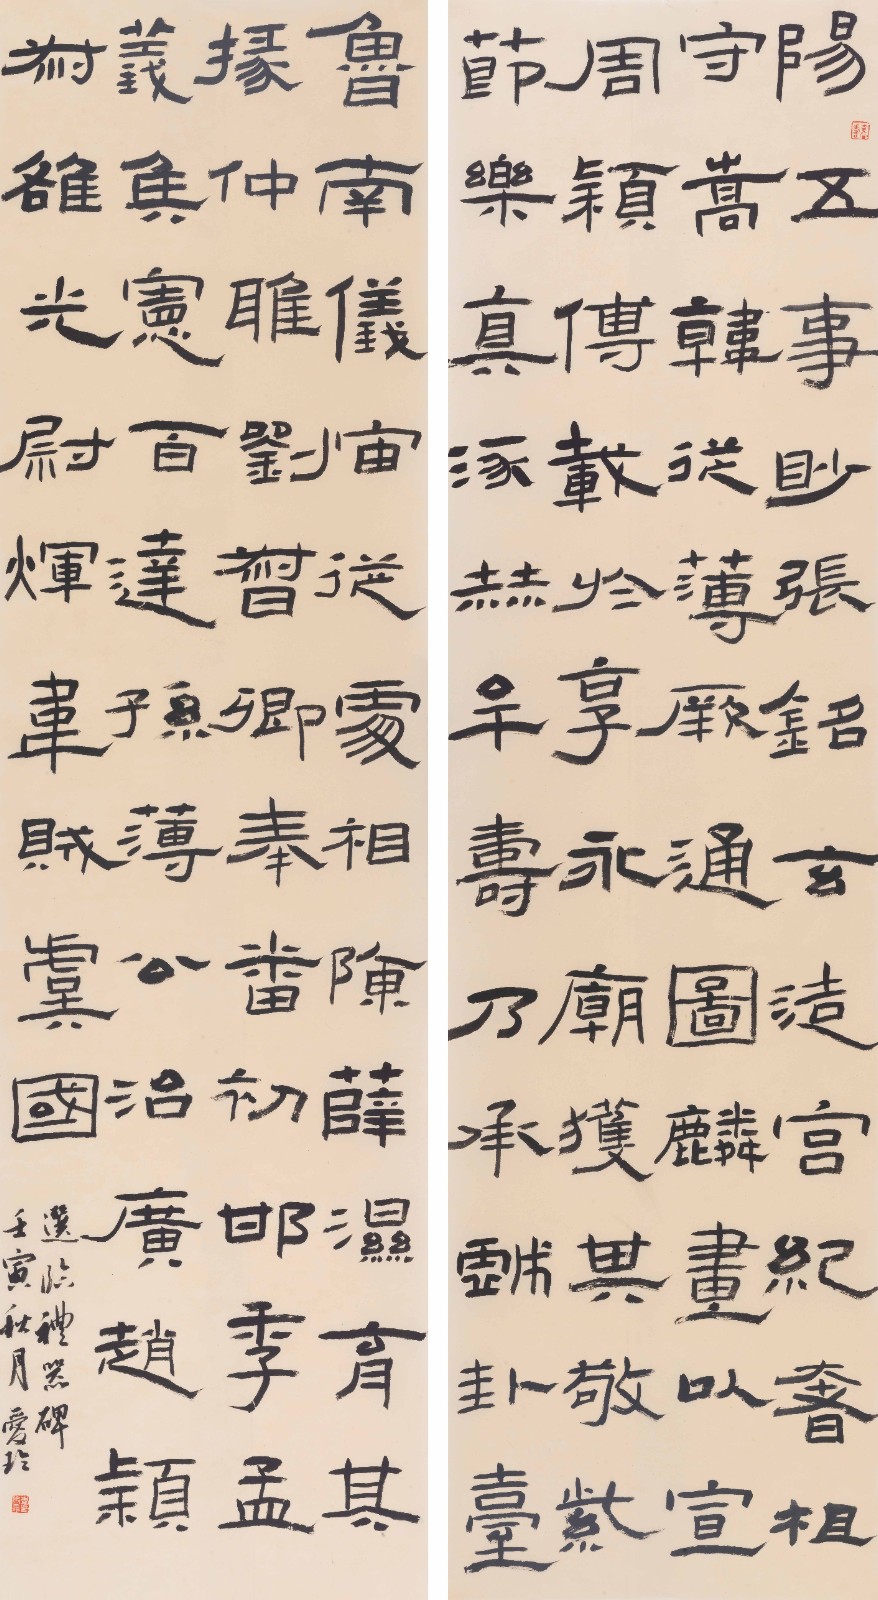 陽五事眇張銘玄造宮紀奢柤
守嵩韓從薄厥通圖麟畫以宣
周潁傳載於享永廟獲敬紫
節樂真涿赫牟壽乃承卦臺
魯南儀宙從處相陳薛濕育其
掾仲雎劉督卿奉番初邯季孟
義雋憲百達孫薄公治廣趙潁
雒光尉煇韋賊虞國
選臨禮器碑
壬寅秋月愛玲